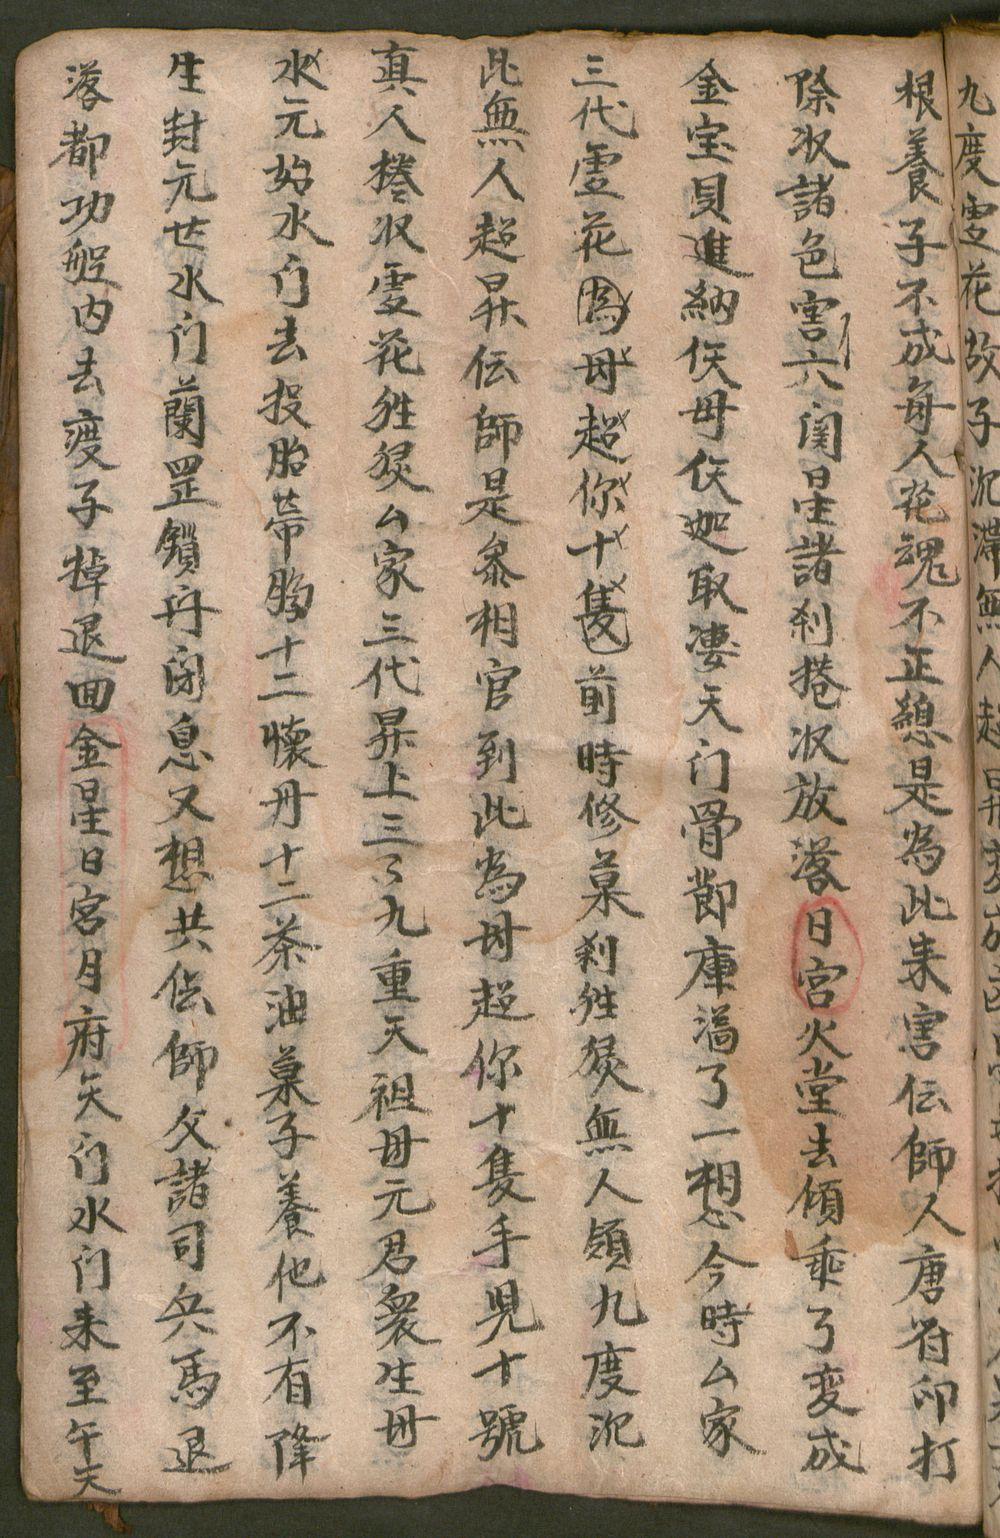 九度𫀄花故子沉滯無人超昇
根養子不成每人花魂不正總是為此來害伝師人唐符印打
除收諸色害六闰星諸刹捲收放落日宮火堂去傾乘了变成
金宝貝進納伕母伕迦取凄天门骨節庫滿了一想今時厶家
三代灵花為母超你十隻前時修菓刹胜煲無人領九度沉
此無人超昇伝師是叅相官到此為母超你十隻手児十號
真人捲収雯花胜煲厶家三代昇上三三九重天祖母元君衆生母
水元始水门去投胎蒂胸十二懷丹十二茶油菓子養他不有降
生封元世水门蘭罡鎖丹闭息又想共伝師父諸司兵馬退
落都功船内去度子掉退回金星日宮月府天门水门来至午天